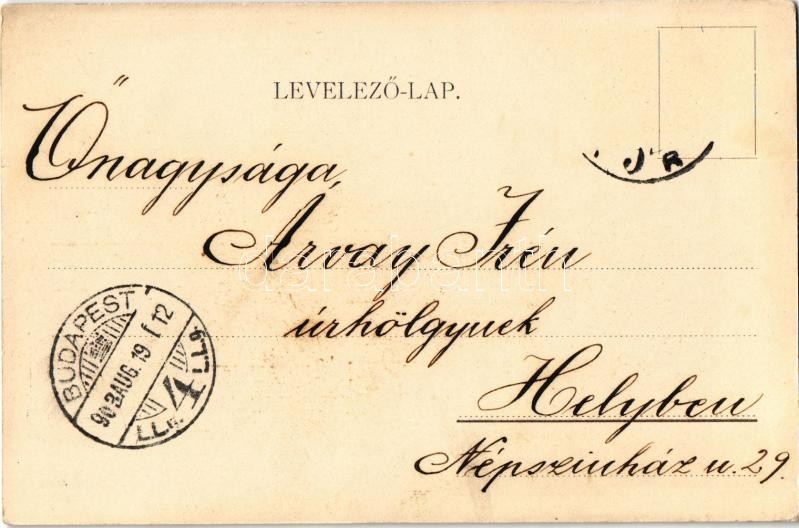 LEVELEZŐ-LAP.
Őnagysága,
Árvay Irén
úrhölgynek
Helyben
Népszinház u. 29.
BUDAPEST
903 AUG. 19
darabanth